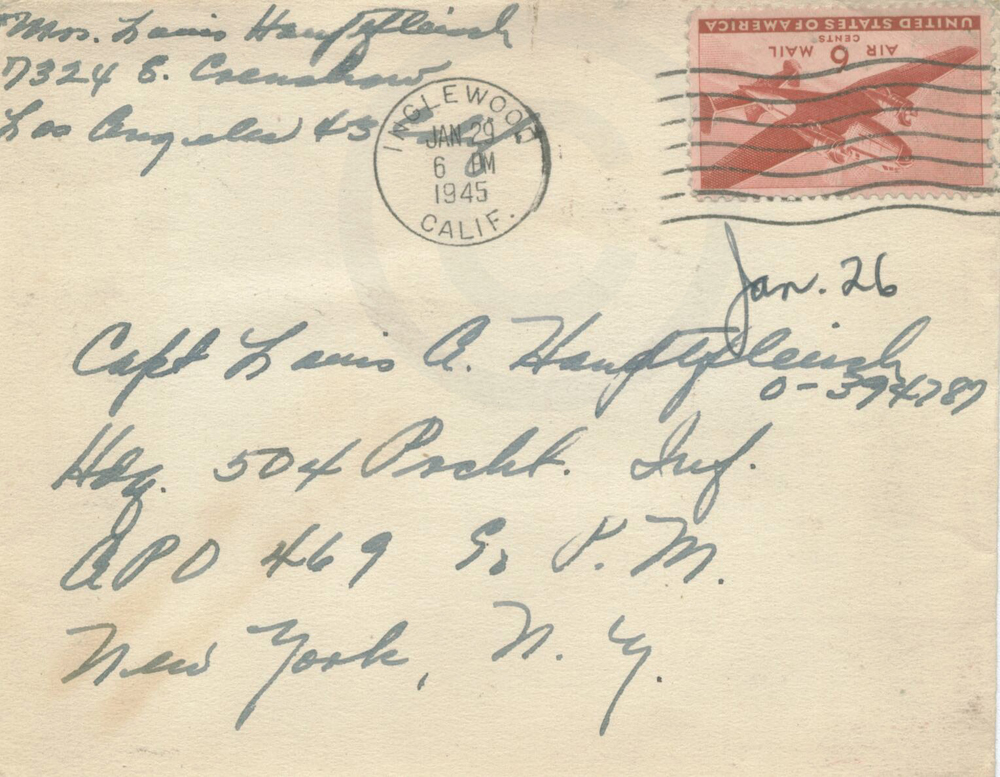 Mrs. Louis Hauptfleisch
7324 S. Crenshaw
Los Angeles 43
INGLEWOOD
JAN 29
6 PM
1945
CALIF.
UNITED STATES OF AMERICA
6 CENTS
AIR MAIL
Jan. 26
Capt Louis A. Hauptfleisch
O-394787
Hdq. 504 Prcht. Inf.
APO 469 % P. M.
New York, N. Y.